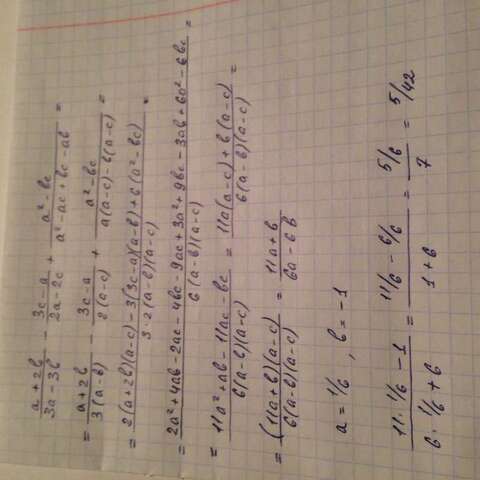 (a + 2b)/(3a - 3b) - (3c - a)/(2a - 2c) + (a² - bc)/(a² - ac + bc - ab) =
= (a + 2b)/(3(a - b)) - (3c - a)/(2(a - c)) + (a² - bc)/(a(a - c) - b(a - c)) =
= (2(a + 2b)(a - c) - 3(3c - a)(a - b) + 6(a² - bc))/(3 · 2(a - b)(a - c)) =
= (2a² + 4ab - 2ac - 4bc - 9ac + 3a² + 9bc - 3ab + 6a² - 6bc)/(6(a - b)(a - c)) =
= (11a² + ab - 11ac - bc)/(6(a - b)(a - c)) = (11a(a - c) + b(a - c))/(6(a - b)(a - c)) =
= ((11a + b)(a - c))/(6(a - b)(a - c)) = (11a + b)/(6a - 6b)
a = 1/6 , b = -1
(11 · 1/6 - 1)/(6 · 1/6 + 6) = (11/6 - 6/6)/(1 + 6) = (5/6)/7 = 5/42